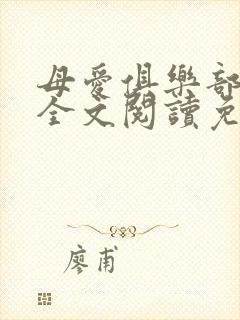 母愛俱樂部
全文閱讀免
廖甫